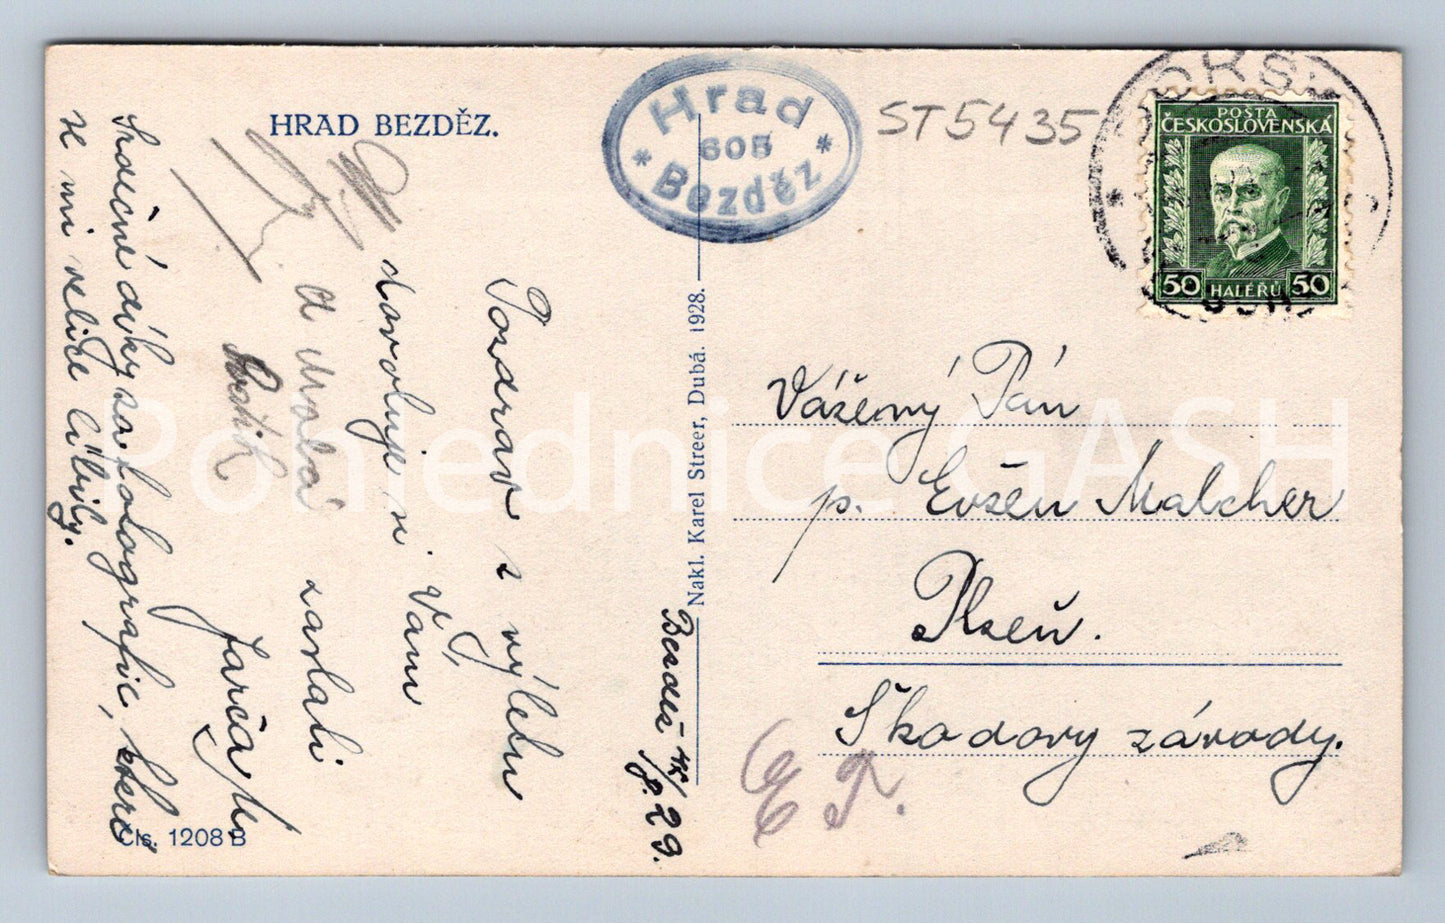 HRAD BEZDĚZ.
Hrad
605
* Bezděz *
ST5435
POŠTA
ČESKOSLOVENSKÁ
50 HALÉŘŮ 50
Pozdrav z výletu
dovoluje si Vám
zaslati
Srdečné díky za fotografie, které
se mi velice líbily.
Bezděz
8. 29.
Nakl. Karel Streer, Dubá. 1928.
Vážený Pán
p. Evžen Malcher
Plzeň.
Škodovy závody.
Čís. 1208 B
Pohlednice GASH